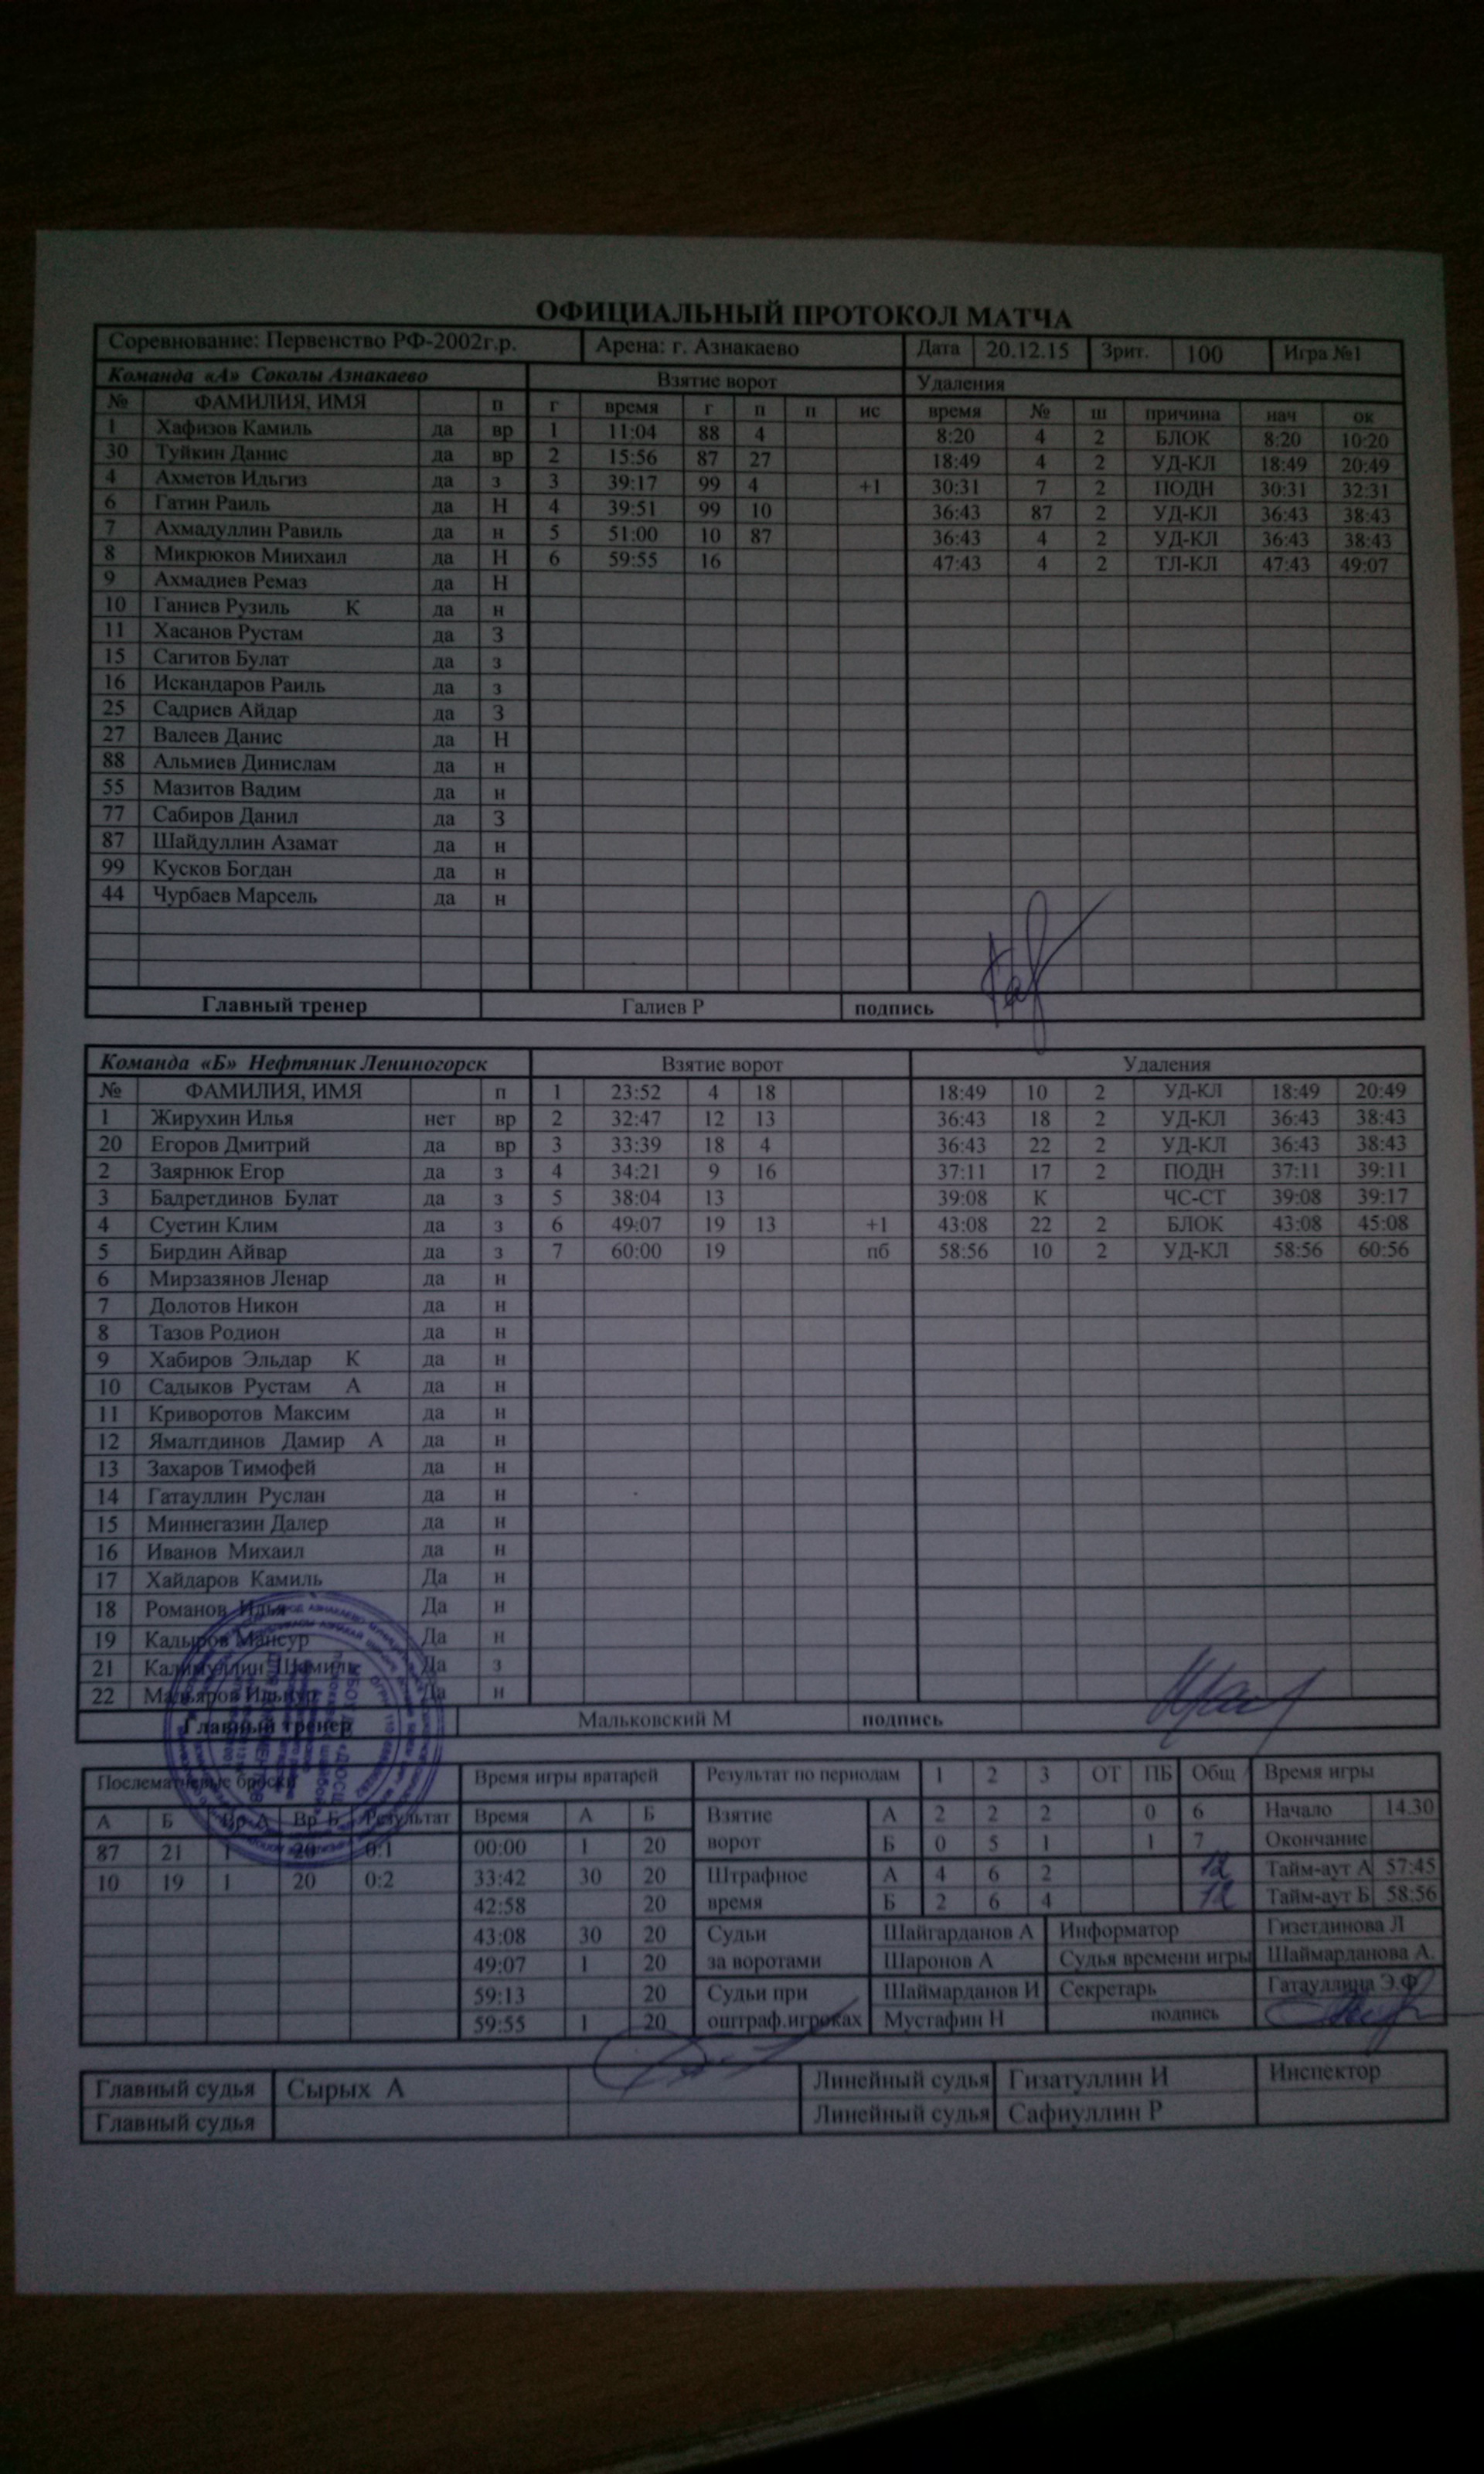 ОФИЦИАЛЬНЫЙ ПРОТОКОЛ МАТЧА
Соревнование: Первенство РФ-2002г.р. Арена: г. Азнакаево Дата 20.12.15 Зрит. 100 Игра №1
Команда «А» Соколы Азнакаево Взятие ворот Удаления
№ ФАМИЛИЯ, ИМЯ п г время г п п ис время № ш причина нач ок
1 Хафизов Камиль да вр 1 11:04 88 4 8:20 4 2 БЛОК 8:20 10:20
30 Туйкин Данис да вр 2 15:56 87 27 18:49 4 2 УД-КЛ 18:49 20:49
4 Ахметов Ильгиз да з 3 39:17 99 4 +1 30:31 7 2 ПОДН 30:31 32:31
6 Гатин Раиль да Н 4 39:51 99 10 36:43 87 2 УД-КЛ 36:43 38:43
7 Ахмадуллин Равиль да н 5 51:00 10 87 36:43 4 2 УД-КЛ 36:43 38:43
8 Микрюков Миихаил да Н 6 59:55 16 47:43 4 2 ТЛ-КЛ 47:43 49:07
9 Ахмадиев Ремаз да Н
10 Ганиев Рузиль К да н
11 Хасанов Рустам да З
15 Сагитов Булат да з
16 Искандаров Раиль да з
25 Садриев Айдар да З
27 Валеев Данис да Н
88 Альмиев Динислам да н
55 Мазитов Вадим да н
77 Сабиров Данил да З
87 Шайдуллин Азамат да н
99 Кусков Богдан да н
44 Чурбаев Марсель да н
Главный тренер Галиев Р подпись
Команда «Б» Нефтяник Лениногорск Взятие ворот Удаления
№ ФАМИЛИЯ, ИМЯ п 1 23:52 4 18 18:49 10 2 УД-КЛ 18:49 20:49
1 Жирухин Илья нет вр 2 32:47 12 13 36:43 18 2 УД-КЛ 36:43 38:43
20 Егоров Дмитрий да вр 3 33:39 18 4 36:43 22 2 УД-КЛ 36:43 38:43
2 Заярнюк Егор да з 4 34:21 9 16 37:11 17 2 ПОДН 37:11 39:11
3 Бадретдинов Булат да з 5 38:04 13 39:08 К ЧС-СТ 39:08 39:17
4 Суетин Клим да з 6 49:07 19 13 +1 43:08 22 2 БЛОК 43:08 45:08
5 Бирдин Айвар да з 7 60:00 19 пб 58:56 10 2 УД-КЛ 58:56 60:56
6 Мирзазянов Ленар да н
7 Долотов Никон да н
8 Тазов Родион да н
9 Хабиров Эльдар К да н
10 Садыков Рустам А да н
11 Криворотов Максим да н
12 Ямалтдинов Дамир А да н
13 Захаров Тимофей да н
14 Гатауллин Руслан да н
15 Миннегазин Далер да н
16 Иванов Михаил да н
17 Хайдаров Камиль Да н
18 Романов Илья Да н
19 Кадыров Мансур Да н
21 Калимуллин Шамиль Да з
22 Мальяров Ильнур Да н
Главный тренер Мальковский М подпись
Послематчевые броски Время игры вратарей Результат по периодам 1 2 3 ОТ ПБ Общ Время игры
А Б Вр А Вр Б Результат Время А Б Взятие А 2 2 2 0 6 Начало 14.30
87 21 1 20 0:1 00:00 1 20 ворот Б 0 5 1 1 7 Окончание
10 19 1 20 0:2 33:42 30 20 Штрафное А 4 6 2 12 Тайм-аут А 57:45
42:58 20 время Б 2 6 4 12 Тайм-аут Б 58:56
43:08 30 20 Судьи Шайгарданов А Информатор Гизетдинова Л
49:07 1 20 за воротами Шаронов А Судья времени игры Шаймарданова А.
59:13 20 Судьи при Шаймарданов И Секретарь Гатауллина Э.Ф
59:55 1 20 оштраф.игроках Мустафин Н подпись
Главный судья Сырых А Линейный судья Гизатуллин И Инспектор
Главный судья Линейный судья Сафиуллин Р